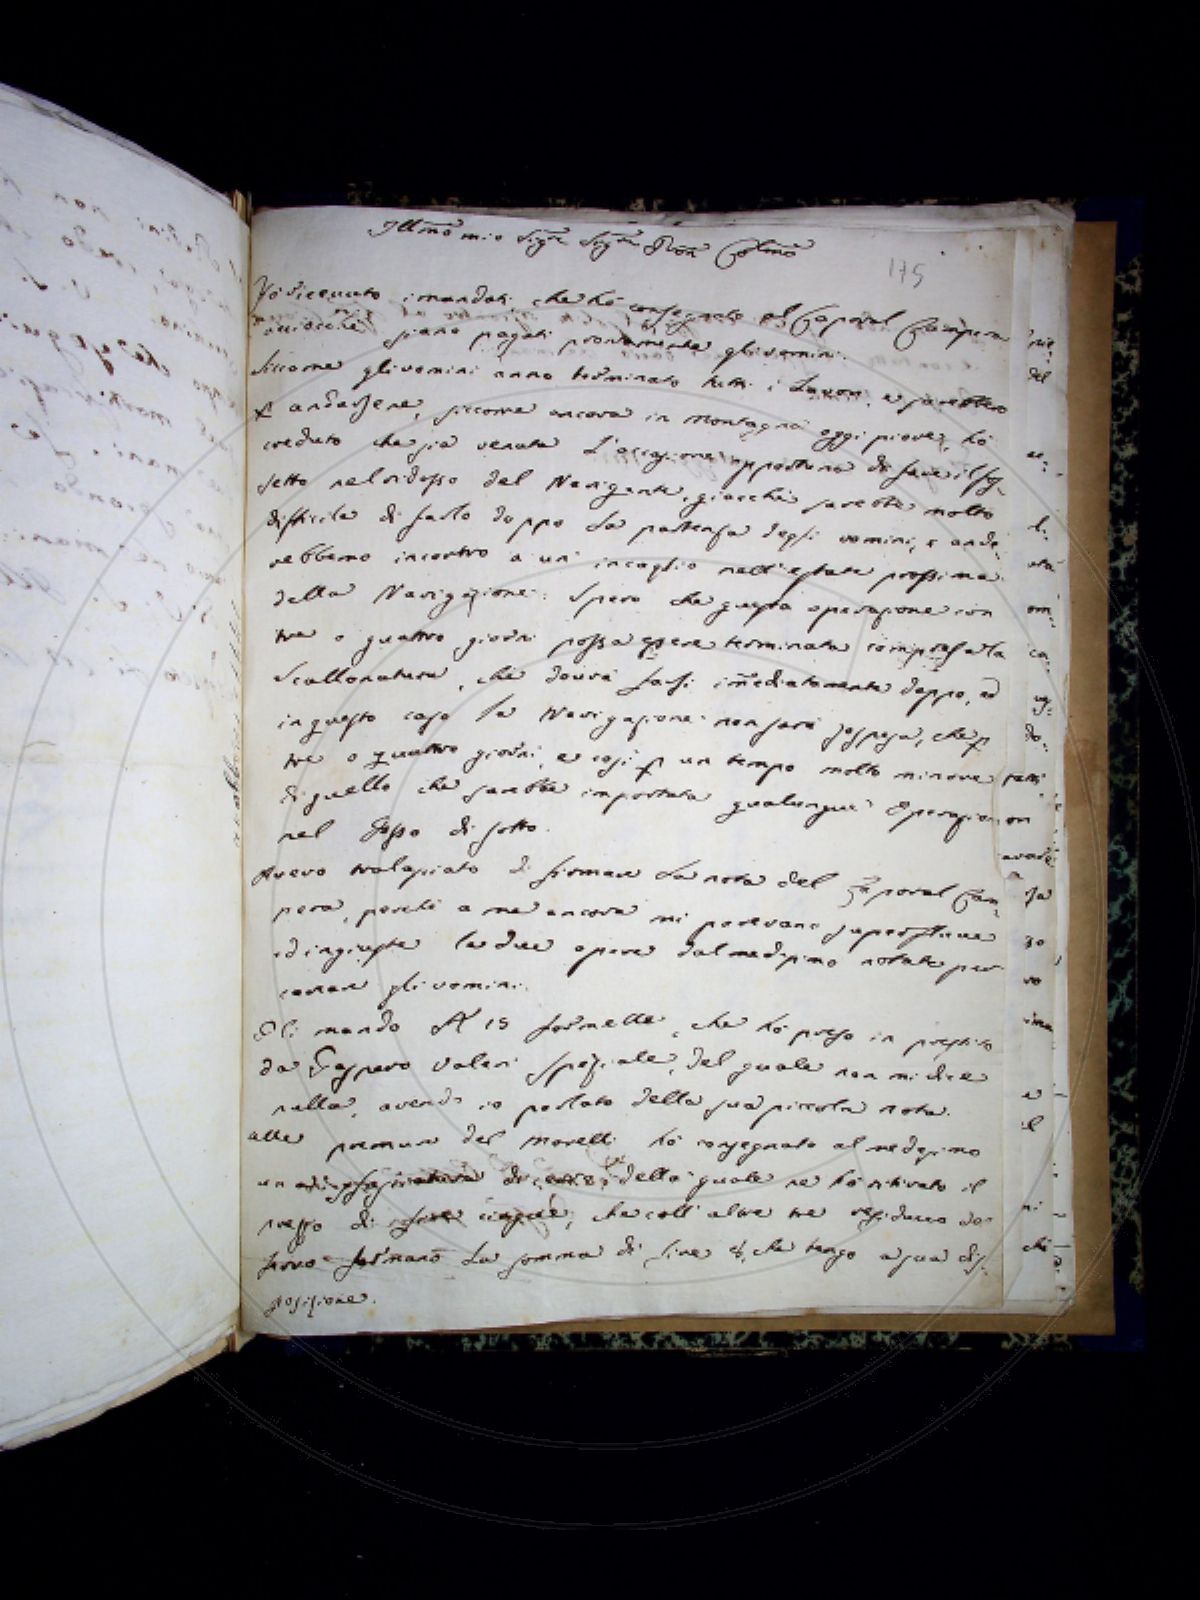 Ill.mo mio Sig.re Sig.re Pron Col.mo
175
Hò ricevuto i mandati che hò consegnato al Caporal Campera
acciocche siano pagati prontamente gli uomini.
Siccome gli uomini anno terminato tutti i Lavori, e sarebbero
p andarsene, siccome ancora in Montagna oggi piove, hò
creduto che sia venuta L'occasione opportuna di fare il fos-
setto nel ridosso del Navigante, giacchè sarebbe molto
difficile di farlo doppo La partenza degli uomini, e ande-
rebbemo incontro a un incaglio nell'estate prossima
della Navigazione. Spero che questa operazione con
tre o quattro giorni possa essere terminata compresa la
Scallonatura, che dovrà farsi im̃ediatamente doppo, ed
in questo caso la Navigazione non sarà sospesa, che p
tre o quattro giorni, e così p un tempo molto minore
di quello che sarebbe importata qualunque Operazion
nel fosso di sotto.
Avevo tralasciato di firmare La nota del Caporal Cam-
pera, perchè a me ancora mi parevano superflue
ed ingiuste le due opere dal medesimo notate per
contare gli uomini.
Gli mando 15 formelle, che hò preso in prestito
da Gaspero Valeri Speziale, del quale non mi dice
nulla, avendo io parlato della sua piccola nota.
Alle premure del Morelli hò consegnato al medesimo
un della quale ne hò ritirato il
prezzo di lire cinque, che coll'altre tre residuo do-
formano La somma di Lire 8, che tengo a sua dis-
posizione.